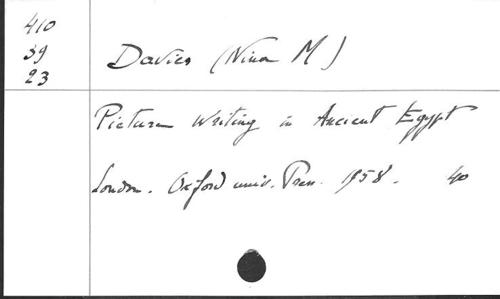 410
39
23
Davies (Nina M)
Picture Writing in Ancient Egypt
London. Oxford univ. Press. 1958. 40